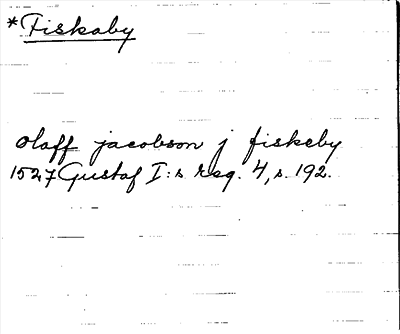 *Fiskaby
olaff jacobson j fiskeby
1527 Gustaf I:s reg. 4, s. 192.